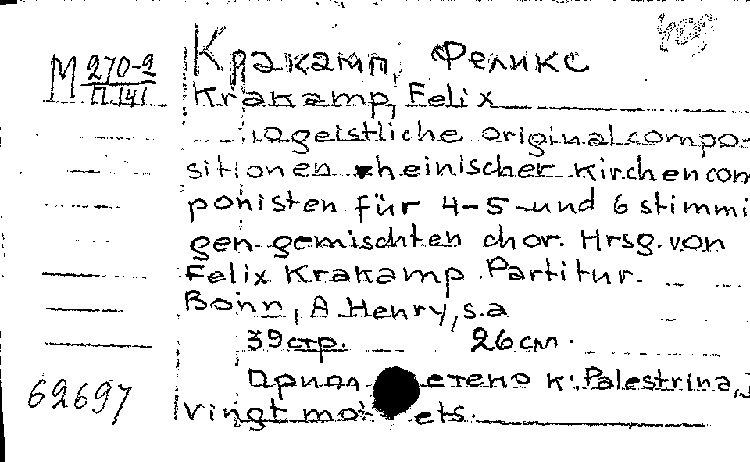 М 270-2
П.141
Кракамп, Феликс
Krakamp, Felix
10 geistliche originalcompo-
sitionen rheinischer kirchencom
ponisten für 4-5-und 6 stimmi
gen gemischten chor. Hrsg. von
Felix Krakamp. Partitur.
Bonn, A Henry, s.a
39 стр. 26 см.
етено к: Palestrina,
62697
vingt mot ets.